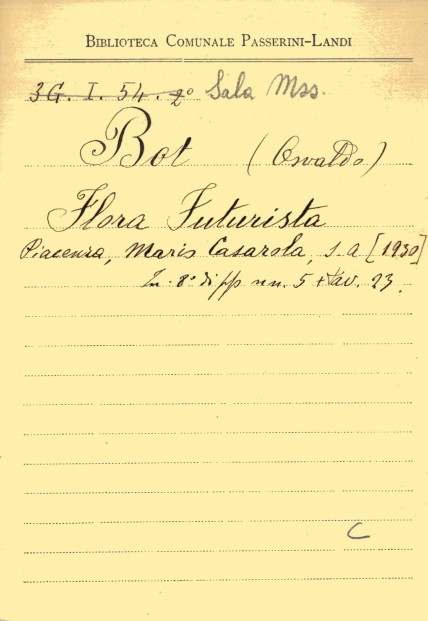 BIBLIOTECA COMUNALE PASSERINI-LANDI
3G. I. 54. 2° Sala Mss.
Bot (Osvaldo)
Flora Futurista
Piacenza, Mario Casarola, s. a [1930]
In-8° di pp nn. 5 + tav. 23.
C